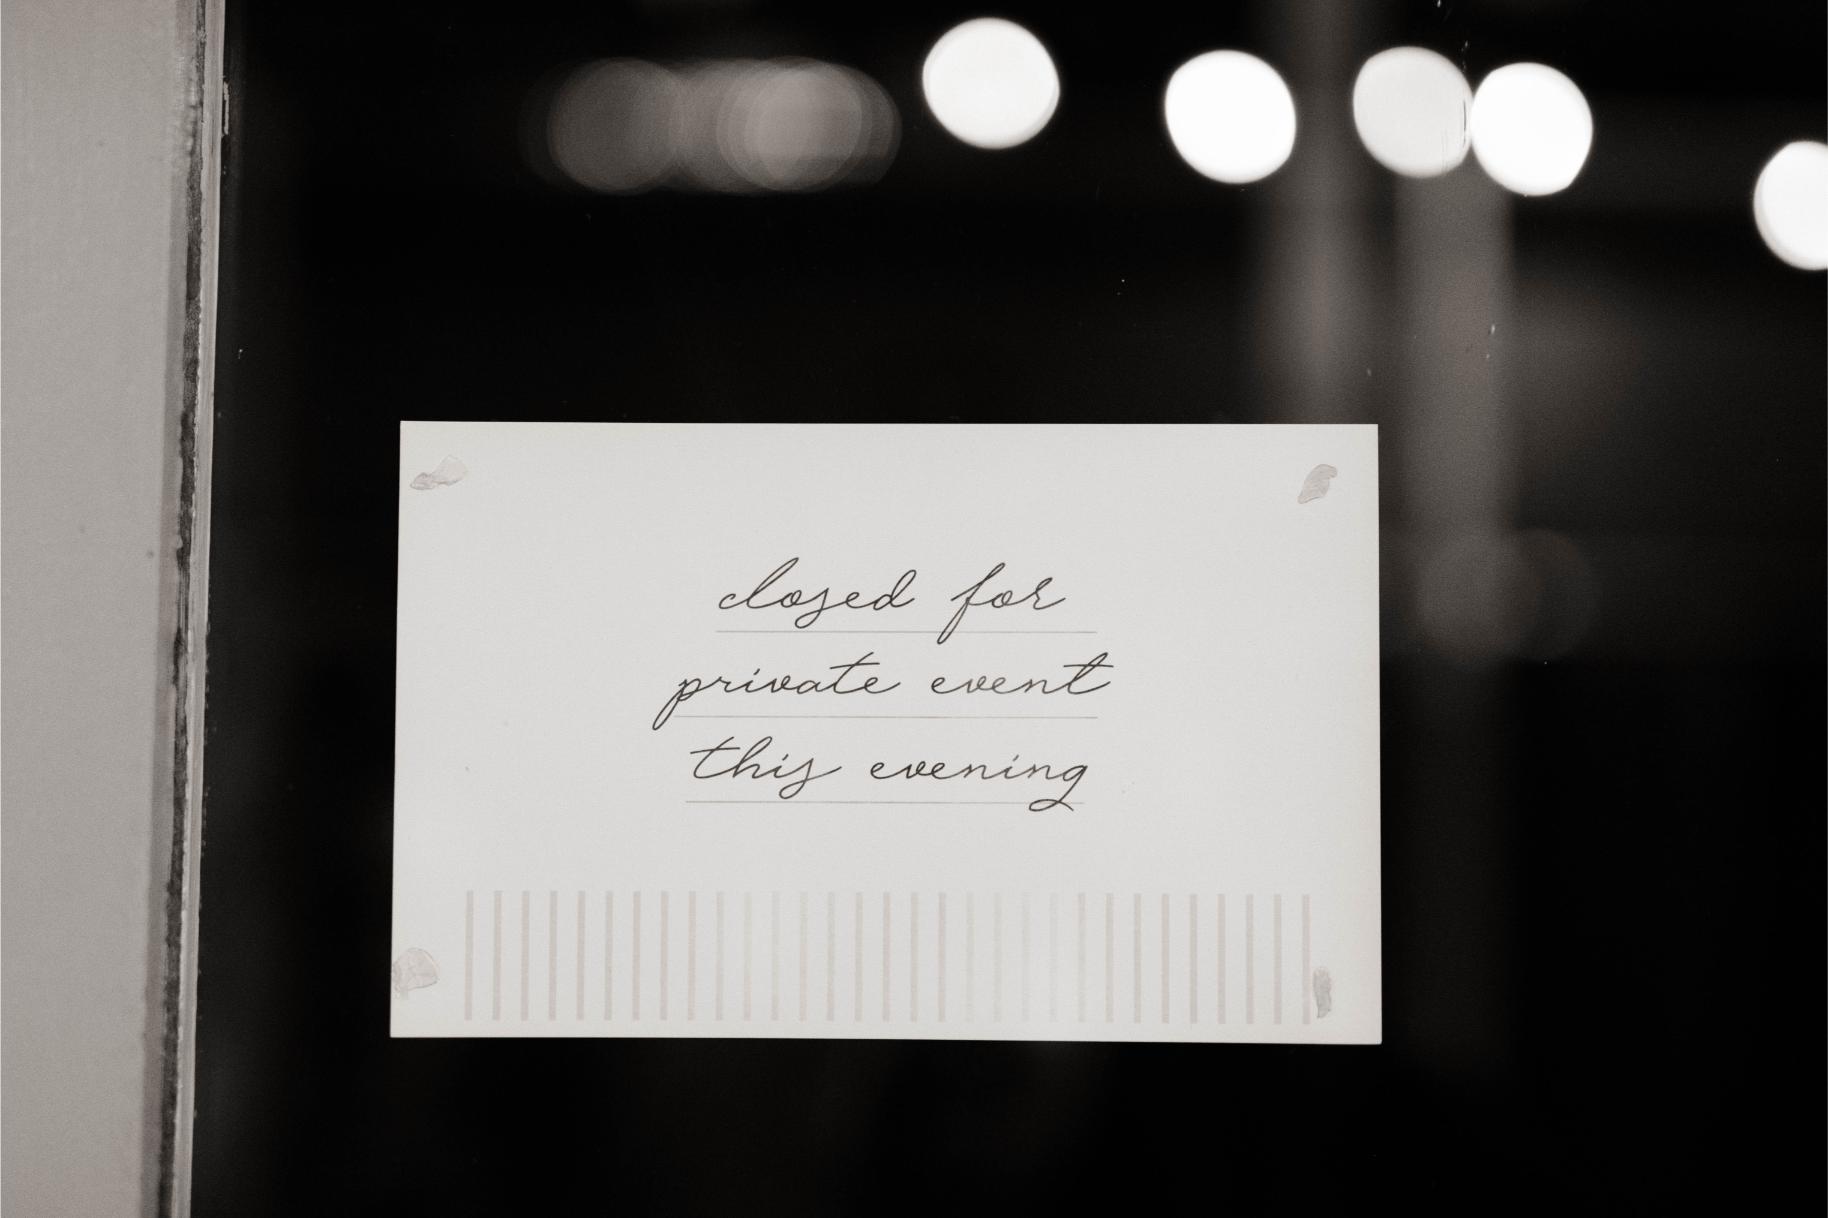 closed for
private event
this evening